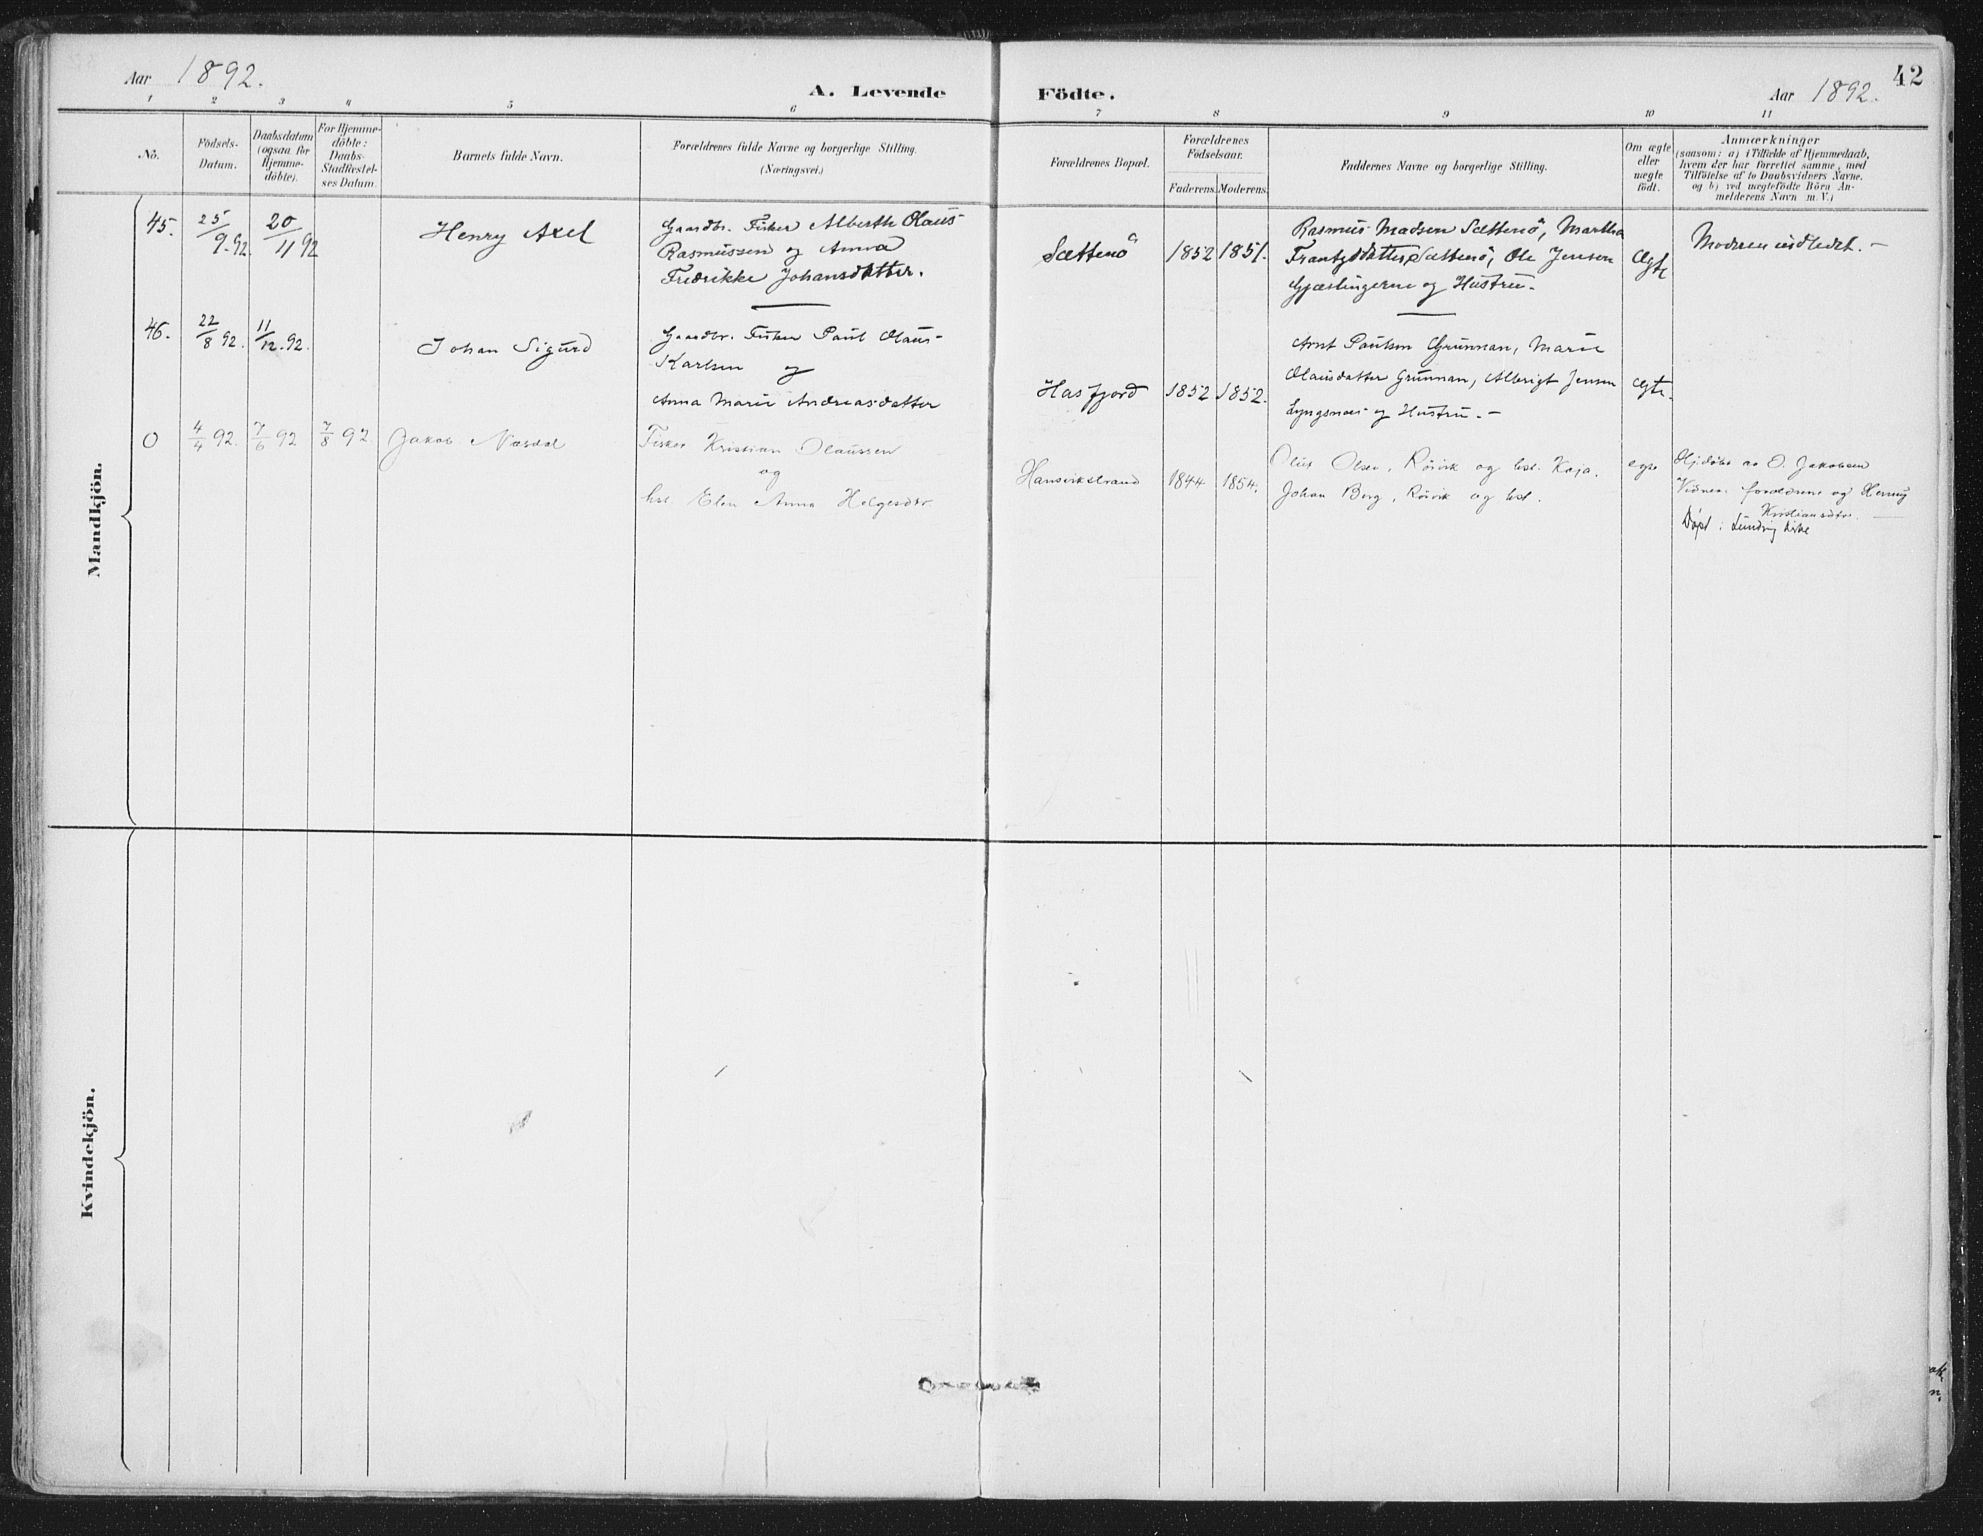 Aar 1892.
A. Levende Födte.
Aar 1892.
42
1 2 3 4 5 6 7 8 9 10 11
No.
Födsels-
Datum.
Daabsdatum
(ogsaa for
Hjemme-
döbte).
For Hjemme-
döbte:
Daabs-
Stadfæstel-
ses Datum.
Barnets fulde Navn.
Forældrenes fulde Navne og borgerlige Stilling.
(Næringsvei.)
Forældrenes Bopæl.
Forældrenes
Födselsaar.
Faderens. Moderens.
Faddernes Navne og borgerlige Stilling.
Om ægte
eller
uægte
födt.
Anmærkninger
(saasom: a) i Tilfælde af Hjemmedaab,
hvem der har forrettet samme, med
Tilföielse af to Daabsvidners Navne,
og b) ved uægtefödte Börn An-
melderens Navn m. V.)
Mandkjön.
45.
25/9.92.
20/11 92
Henry Axel
Gaardbr. Fisker Alberth Olaus
Rasmussen og Anna
Fredrikke Johansdatter.
Sættenö
1852 1851.
Rasmus Madsen Sættenö, Martha
Frantzdatter Sættenö, Ole Jensen
Gjæslingerne og Hustru.
Ægte
Moderen indledet. -
46.
22/8 92.
11/12.92.
Johan Sigurd
Gaardbr. Fisker Paul Olaus-
Karlsen og
Anna Marie Andreasdatter
Hasfjord
1852 1852.
Arnt Paulsen Grunnan, Marie
Olausdatter Grunnan, Albrigt Jensen
Lyngsnes og Hustru. -
ægte.
0
4/4 92.
7/6 92
7/8 92
Jakob Næsdal
Fisker Kristian Olaussen
og
hst. Elen Anna Helgesdtr.
Hansvikstrand
1844 1854.
Oluf Olsen, Röivik og hst. Kaja.
Johan Berg, Röivik og hst.
egte
Hjdöbt av O. Jakobsen
Vidner: forældrene og
Kristiansdtr.
Döpt i Lundring kirke
Kvindekjön.